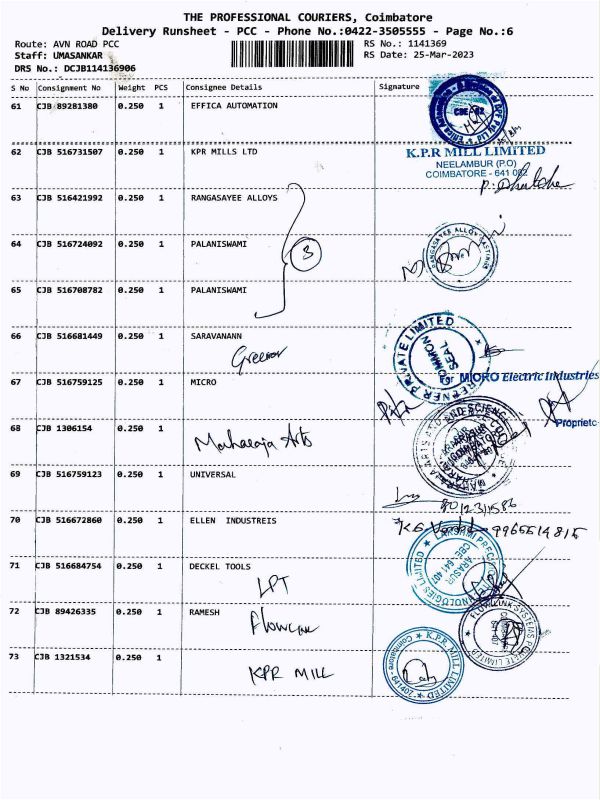 THE PROFESSIONAL COURIERS, Coimbatore
Delivery Runsheet - PCC - Phone No.:0422-3505555 - Page No.:6
Route: AVN ROAD PCC RS No.: 1141369
Staff: UMASANKAR RS Date: 25-Mar-2023
DRS No.: DCJB114136906
S No Consignment No Weight PCS Consignee Details Signature
61 CJB 89281380 0.250 1 EFFICA AUTOMATION
62 CJB 516731507 0.250 1 KPR MILLS LTD
K.P.R MILL LIMITED
NEELAMBUR (P.O)
COIMBATORE - 641 062
63 CJB 516421992 0.250 1 RANGASAYEE ALLOYS
64 CJB 516724092 0.250 1 PALANISWAMI
3
RANGASAYEE ALLOY CASTINGS
65 CJB 516708782 0.250 1 PALANISWAMI
66 CJB 516681449 0.250 1 SARAVANANN
PRIVATE LIMITED
COMMON
SEAL
67 CJB 516759125 0.250 1 MICRO
For MICRO Electric Industries
Proprieto
68 CJB 1306154 0.250 1
Maharaja Arts
69 CJB 516759123 0.250 1 UNIVERSAL
70 CJB 516672860 0.250 1 ELLEN INDUSTREIS
9965514815
71 CJB 516684754 0.250 1 DECKEL TOOLS
LPT
ARASUR
CBE 641 407
72 CJB 89426335 0.250 1 RAMESH
Flowlink
FLOWLINK SYSTEMS PRIVATE LIMITED
73 CJB 1321534 0.250 1
KPR MILL
K.P.R. MILL LIMITED
Coimbatore - 641407